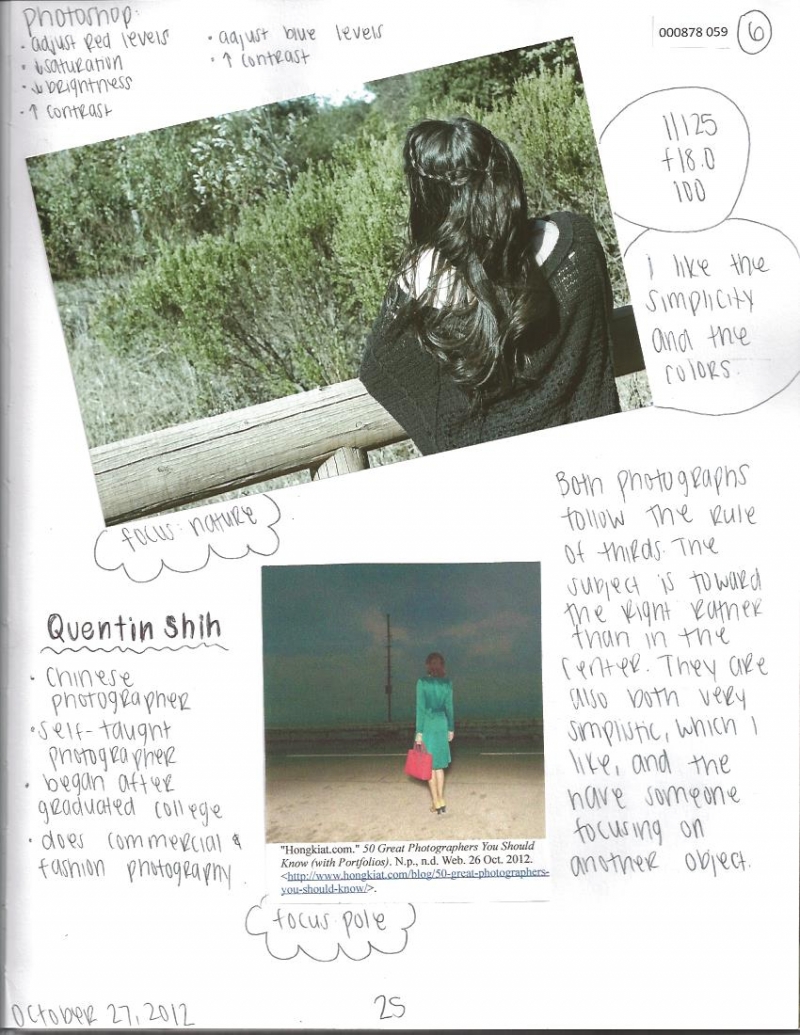 photoshop:
· adjust red levels
· ↓saturation
· ↓brightness
· ↑ contrast
· adjust blue levels
· ↑ contrast
000878 059
6
1/125
f/8.0
100
I like the
simplicity
and the
colors.
focus: nature
Both photographs
follow the rule
of thirds. The
subject is toward
the right rather
than in the
center. They are
also both very
simplistic, which I
like, and the
have someone
focusing on
another object.
Quentin Shih
· Chinese
photographer
· self-taught
photographer
· began after
graduated college
· does commercial &
fashion photography
"Hongkiat.com." 50 Great Photographers You Should
Know (with Portfolios). N.p., n.d. Web. 26 Oct. 2012.
<http://www.hongkiat.com/blog/50-great-photographers-
you-should-know/>.
focus: pole
October 27, 2012
25